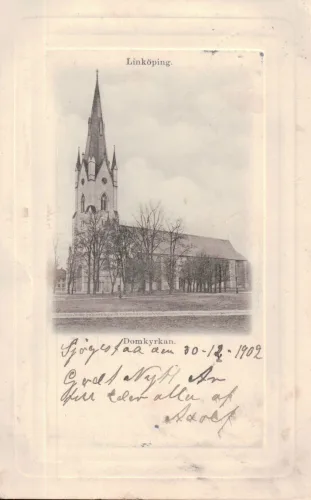 Linköping.
Domkyrkan.
Sjögestad den 30-12-1902
Godt Nytt År
till eder alla af
Adolf